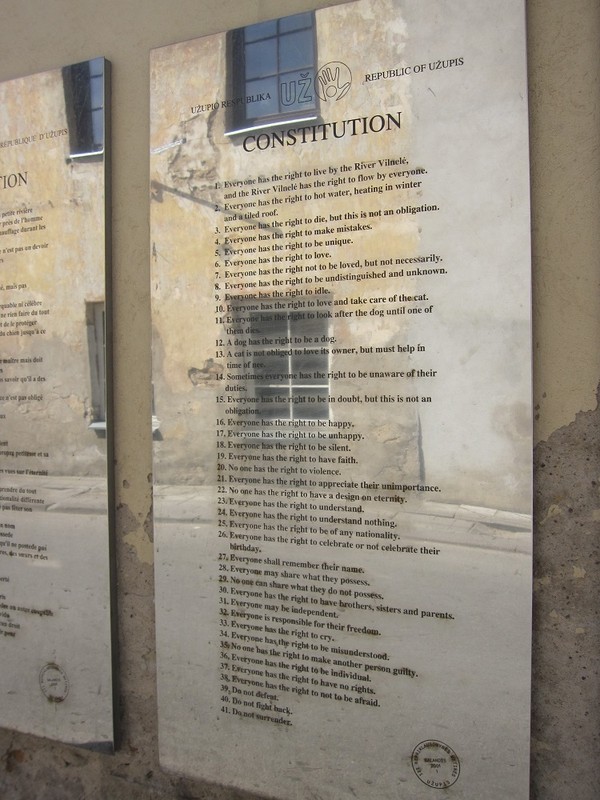 RÉPUBLIQUE D'UŽUPIS
UŽUPIO RESPUBLIKA
UŽ
REPUBLIC OF UŽUPIS
CONSTITUTION
1. Everyone has the right to live by the River Vilnelė,
and the River Vilnelė has the right to flow by everyone.
2. Everyone has the right to hot water, heating in winter
and a tiled roof.
3. Everyone has the right to die, but this is not an obligation.
4. Everyone has the right to make mistakes.
5. Everyone has the right to be unique.
6. Everyone has the right to love.
7. Everyone has the right not to be loved, but not necessarily.
8. Everyone has the right to be undistinguished and unknown.
9. Everyone has the right to idle.
10. Everyone has the right to love and take care of the cat.
11. Everyone has the right to look after the dog until one of
them dies.
12. A dog has the right to be a dog.
13. A cat is not obliged to love its owner, but must help in
time of nee.
14. Sometimes everyone has the right to be unaware of their
duties.
15. Everyone has the right to be in doubt, but this is not an
obligation.
16. Everyone has the right to be happy.
17. Everyone has the right to be unhappy.
18. Everyone has the right to be silent.
19. Everyone has the right to have faith.
20. No one has the right to violence.
21. Everyone has the right to appreciate their unimportance.
22. No one has the right to have a design on eternity.
23. Everyone has the right to understand.
24. Everyone has the right to understand nothing.
25. Everyone has the right to be of any nationality.
26. Everyone has the right to celebrate or not celebrate their
birthday.
27. Everyone shall remember their name.
28. Everyone may share what they possess.
29. No one can share what they do not possess.
30. Everyone has the right to have brothers, sisters and parents.
31. Everyone may be independent.
32. Everyone is responsible for their freedom.
33. Everyone has the right to cry.
34. Everyone has the right to be misunderstood.
35. No one has the right to make another person guilty.
36. Everyone has the right to be individual.
37. Everyone has the right to have no rights.
38. Everyone has the right to not to be afraid.
39. Do not defeat.
40. Do not fight back.
41. Do not surrender.